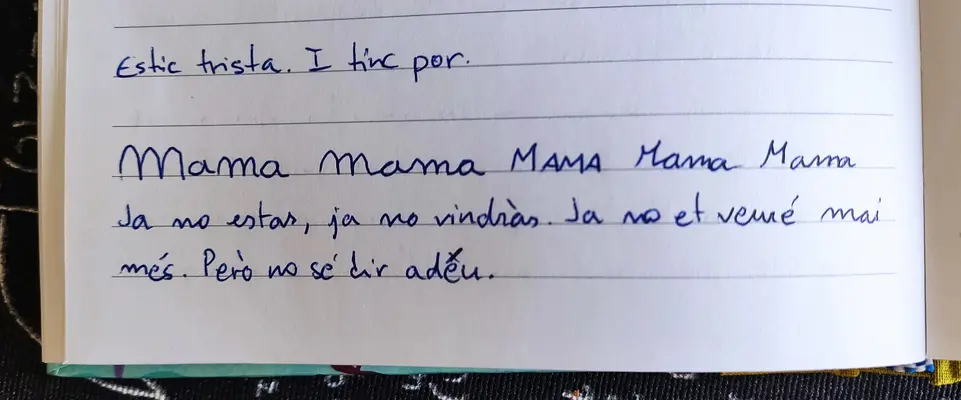 Estic trista. I tinc por.
Mama Mama MAMA Mama Mama
Ja no estas, ja no vindràs. Ja no et veuré mai
més. Però no sé dir adéu.